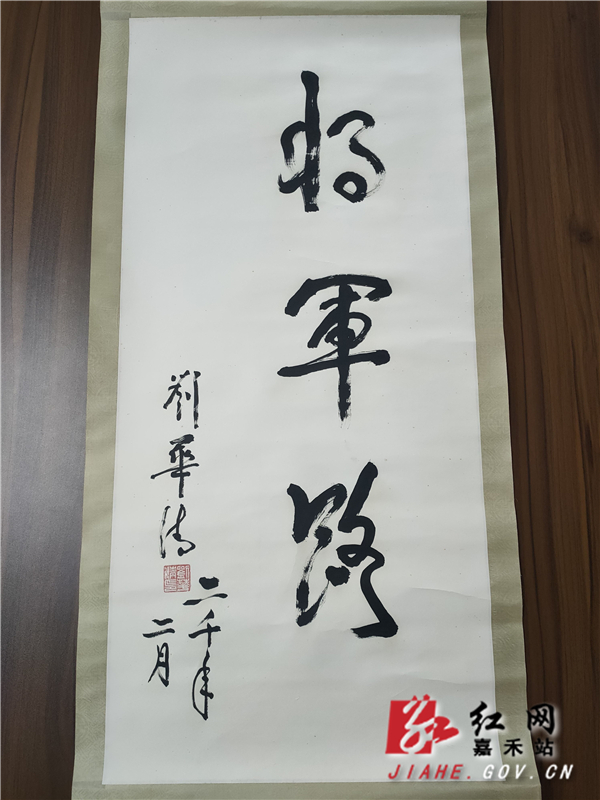 将軍路
劉華清
二千年
二月
红网
嘉禾站
JIAHE.GOV.CN